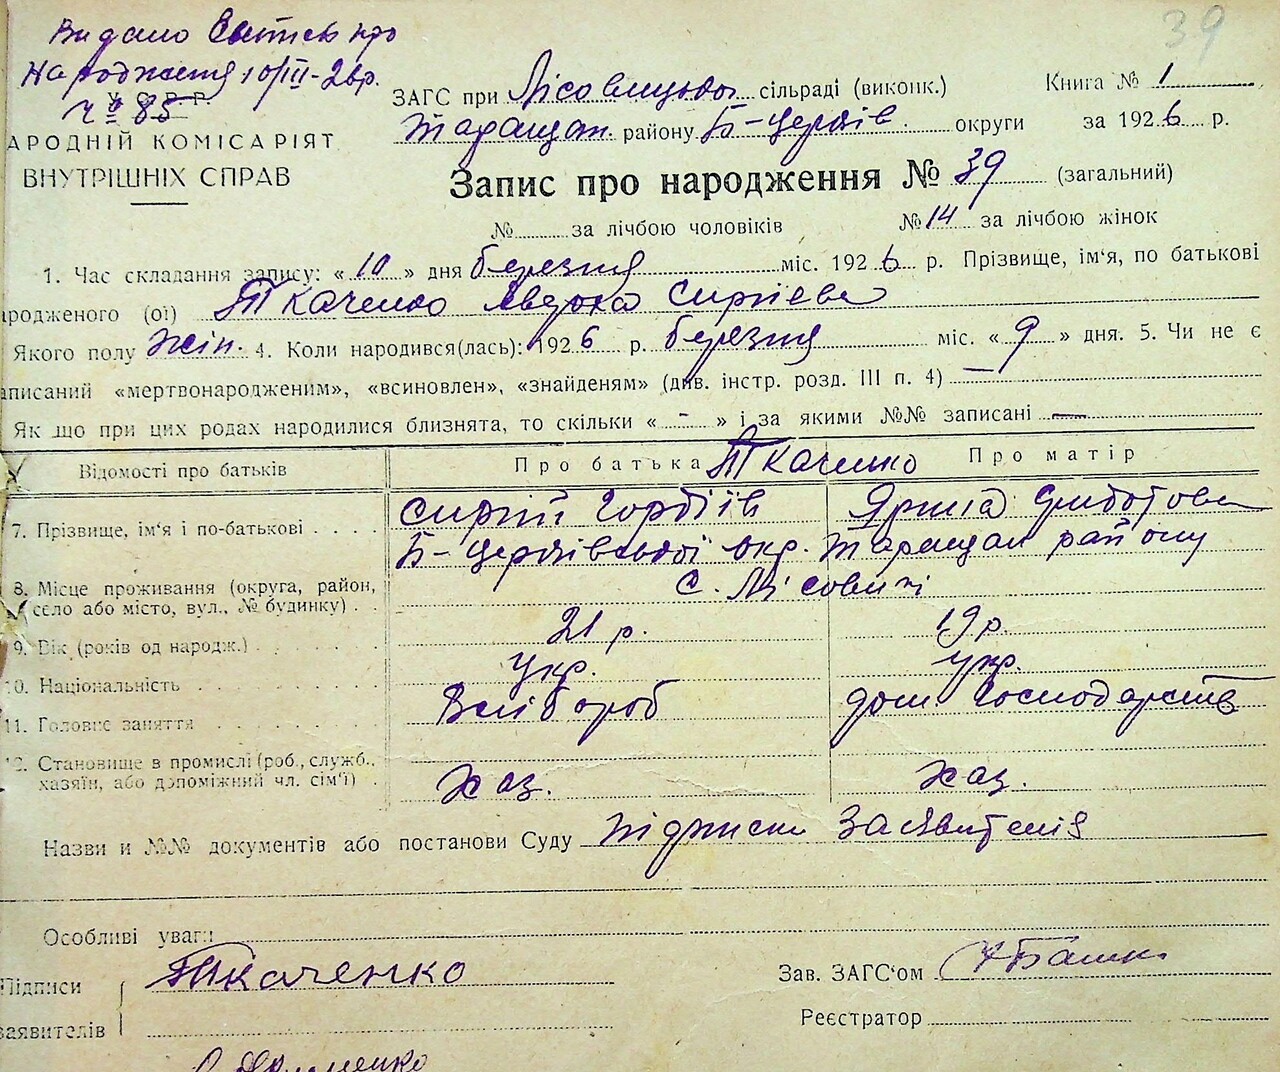 Видано Витяг про
Народження 10/III-26р.
У.С.Р.Р.
№ 85
АРОДНІЙ КОМІСАРІЯТ
ВНУТРІШНІХ СПРАВ
39
ЗАГС при Лісовицькой сільраді (виконк.) Книга № 1
Таращан. району Б-Церків. округи за 1926 р.
Запис про народження № 39 (загальний)
№ за лічбою чоловіків № 14 за лічбою жінок
1. Час складання запису: « 10 » дня березня міс. 1926 р. Прізвище, ім'я, по батькові
ародженого (ої) Ткаченко Явдоха Сиргіева
Якого полу жін. 4. Коли народився(лась): 1926 р. березня міс. « 9 » дня. 5. Чи не є
аписаний «мертвонародженим», «всиновлен», «знайденям» (див. інстр. розд. III п. 4) —
Як що при цих родах народилися близнята, то скільки « - » і за якими №№ записані —
Відомості про батьків Про батька Ткаченко Про матір
7. Прізвище, ім'я і по-батькові Сиргій Гордіїв Ярина
Б-Церківської окр. Таращан району
8. Місце проживання (округа, район, село або місто, вул., № будинку) с. Лісовичі
9. Вік (років од народж.) 21 р. 19 р.
10. Національність Укр. укр.
11. Головне заняття Хлібороб дом. Господарств
12. Становище в промислі (роб., служб., хазяїн, або допоміжний чл. сім'ї) Хаз. Хаз.
Назви и №№ документів або постанови Суду підписки Заявителів
Особливі уваги
Підписи Ткаченко Зав. ЗАГС'ом
заявителів Реєстратор